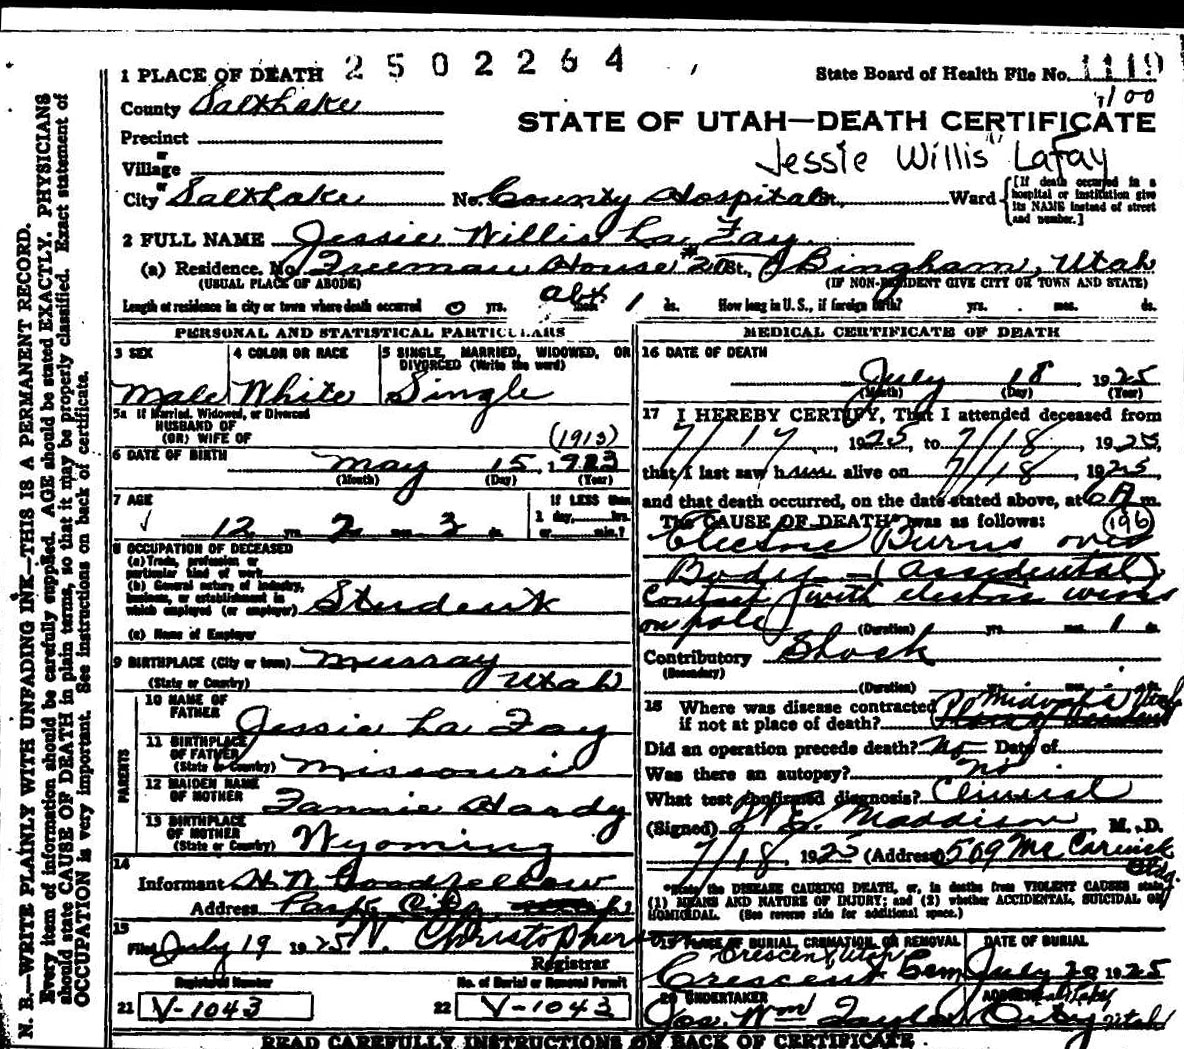 1 PLACE OF DEATH 2502264
State Board of Health File No. 1119
County Salt Lake
1/00
STATE OF UTAH—DEATH CERTIFICATE
Precinct
or
Village
or
Jessie Willis LaFay
City Salt Lake No. County Hospital, Ward [If death occurred in a hospital or institution give its NAME instead of street and number.]
2 FULL NAME Jessie Willis La Fay
(a) Residence. No. Freeman House #20 St., Bingham, Utah
(USUAL PLACE OF ABODE) (IF NON-RESIDENT GIVE CITY OR TOWN AND STATE)
Length of residence in city or town where death occurred 0 yrs. abt. mos. 1 ds. How long in U.S., if foreign birth? yrs. mos. ds.
PERSONAL AND STATISTICAL PARTICULARS
3 SEX
Male
4 COLOR OR RACE
White
5 SINGLE, MARRIED, WIDOWED, OR DIVORCED (Write the word)
Single
5a If Married, Widowed, or Divorced
HUSBAND OF
(OR) WIFE OF
(1913)
6 DATE OF BIRTH May 15, 1923
(Month) (Day) (Year)
7 AGE
12 yrs. 2 mos. 3 ds.
IF LESS than
1 day, hrs.
or min.?
8 OCCUPATION OF DECEASED
(a) Trade, profession or
particular kind of work
(b) General nature of industry,
business, or establishment in
which employed (or employer) Student
(c) Name of Employer
9 BIRTHPLACE (City or town) Murray
(State or Country) Utah
PARENTS
10 NAME OF
FATHER Jessie La Fay
11 BIRTHPLACE
OF FATHER
(State or Country) Missouri
12 MAIDEN NAME
OF MOTHER Fannie Hardy
13 BIRTHPLACE
OF MOTHER
(State or Country) Wyoming
14
Informant H. N. Goodfellow
Address Park City
15
Filed July 19 1925 W. Christopherson
Registrar
Registered Number
21 V-1043
No. of Burial or Removal Permit
22 V-1043
MEDICAL CERTIFICATE OF DEATH
16 DATE OF DEATH
July 18, 1925
(Month) (Day) (Year)
17 I HEREBY CERTIFY, That I attended deceased from
7/17, 1925, to 7/18, 1925,
that I last saw him alive on 7/18, 1925
and that death occurred, on the date stated above, at 6 A m.
The CAUSE OF DEATH* was as follows: (196)
Electric Burns over
Body - (accidental)
Contact with electric wires
on pole (Duration) yrs. mos. 1 ds.
Contributory Shock
(Secondary)
(Duration) yrs. mos. ds.
18 Where was disease contracted Midvale Utah
if not at place of death? Place of accident
Did an operation precede death? no Date of
Was there an autopsy? no
What test confirmed diagnosis? Clinical
(Signed) Maddison M. D.
7/18, 1925 (Address) 509 Mc Cornick Bldg.
*State the DISEASE CAUSING DEATH, or, in deaths from VIOLENT CAUSES state
(1) MEANS AND NATURE OF INJURY; and (2) whether ACCIDENTAL, SUICIDAL OR
HOMICIDAL. (See reverse side for additional space.)
19 PLACE OF BURIAL, CREMATION, OR REMOVAL
Crescent, Utah
Crescent Cem
DATE OF BURIAL
July 20 1925
20 UNDERTAKER
Jos. Wm Taylor
ADDRESS
Salt Lake
City Utah
READ CAREFULLY INSTRUCTIONS ON BACK OF CERTIFICATE
N. B.—WRITE PLAINLY WITH UNFADING INK—THIS IS A PERMANENT RECORD.
Every item of information should be carefully supplied. AGE should be stated EXACTLY. PHYSICIANS
should state CAUSE OF DEATH in plain terms, so that it may be properly classified. Exact statement of
OCCUPATION is very important. See instructions on back of certificate.